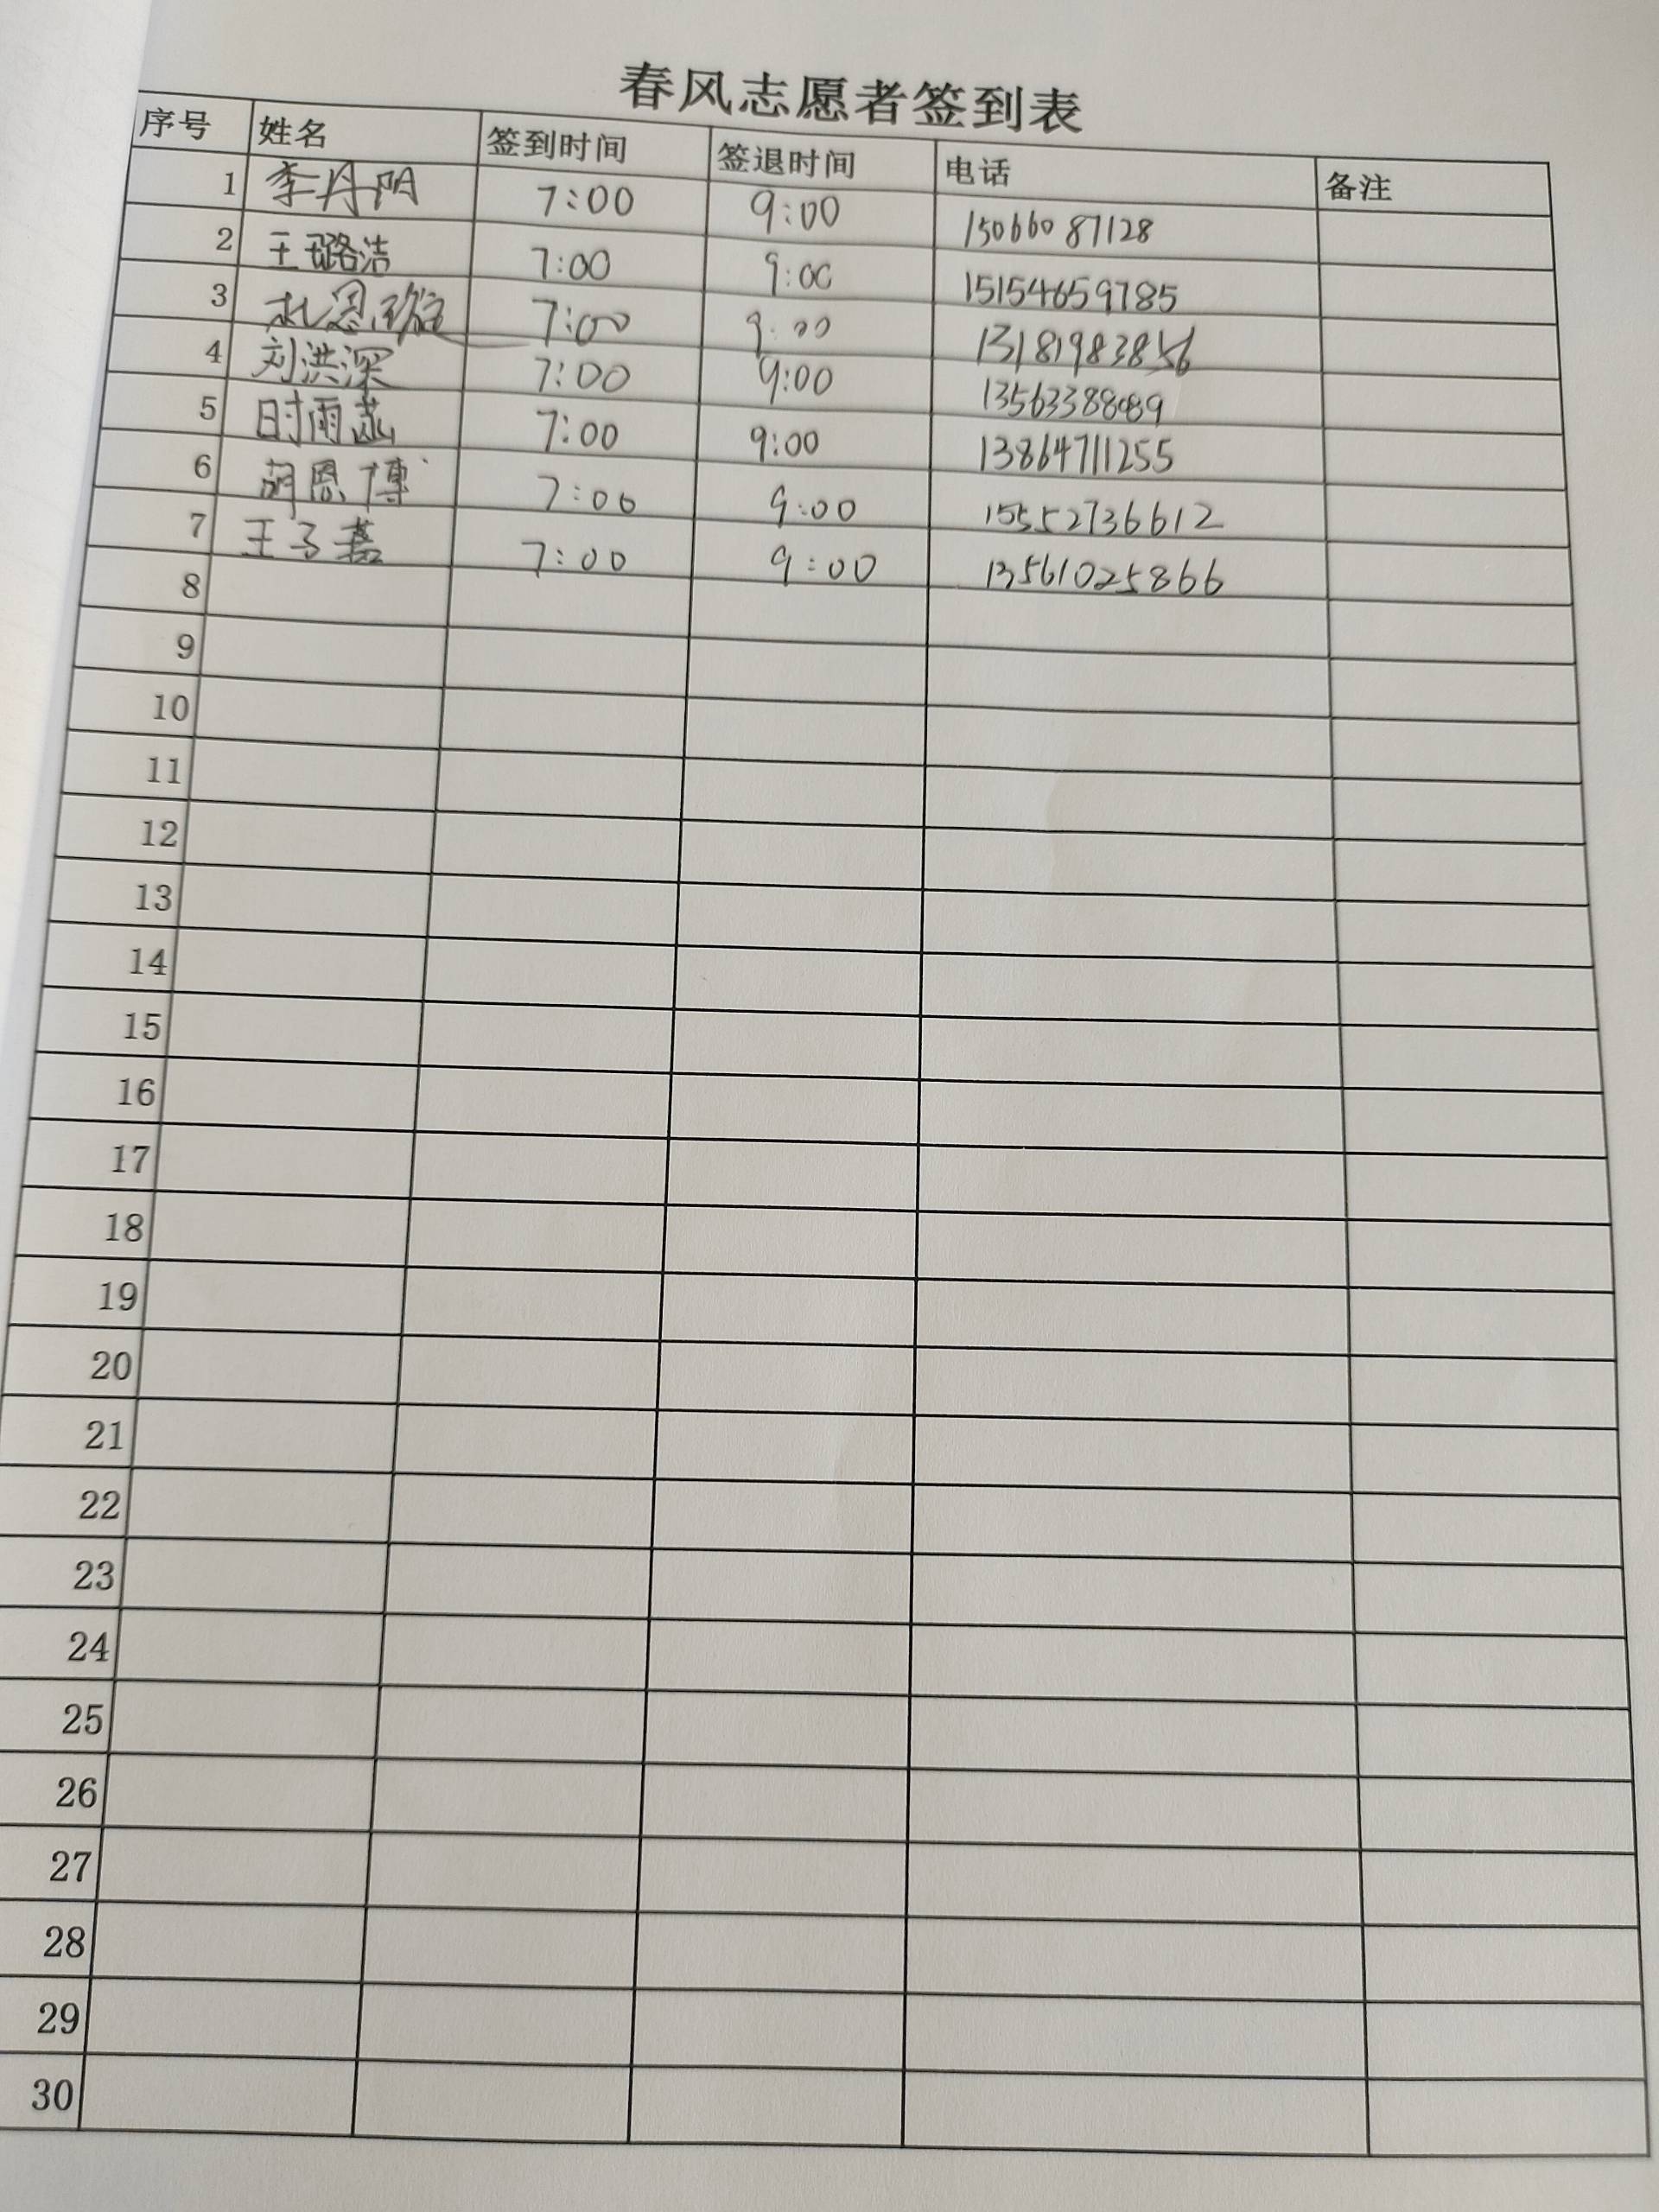 春风志愿者签到表
序号 姓名 签到时间 签退时间 电话 备注
1 李丹阳 7:00 9:00 15066087128
2 王璐洁 7:00 9:00 15154659785
3 7:00 9:00 13181983856
4 刘洪深 7:00 9:00
5 时雨菡 7:00 9:00 13864711255
6 胡恩博 7:00 9:00 15552736612
7 王子 7:00 9:00 13561025866
8
9
10
11
12
13
14
15
16
17
18
19
20
21
22
23
24
25
26
27
28
29
30